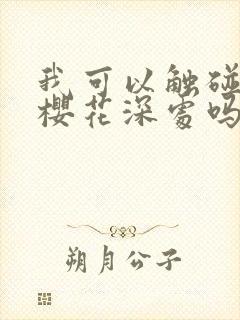 我可以触碰
櫻花深處吗
朔月公子